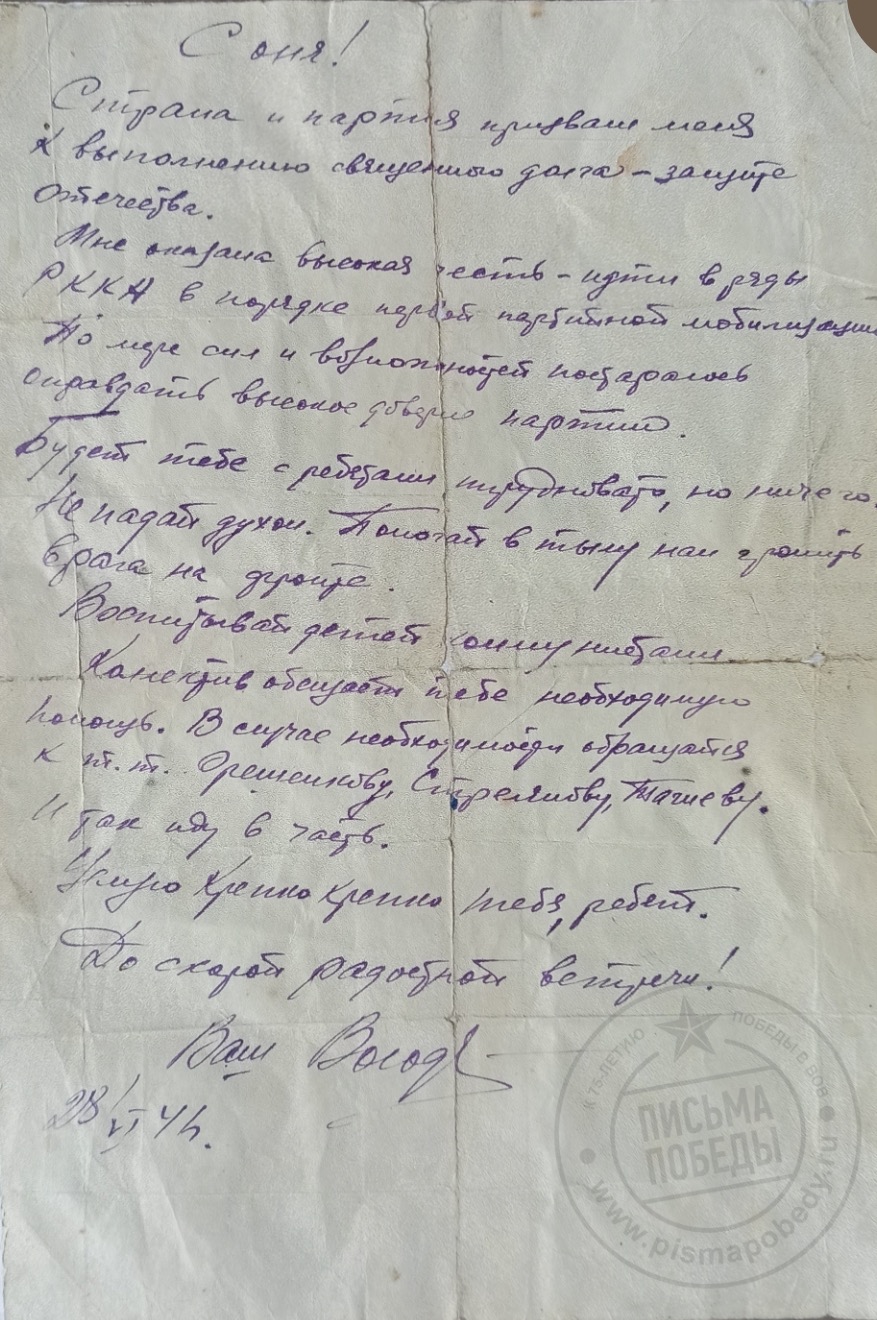 Соня!
Страна и партия призвали меня
к выполнению священного долга – защите
отечества.
Мне оказана высокая честь – идти в ряды
РККА в порядке первой партийной мобилизации
По мере сил и возможностей постараюсь
оправдать высокое доверие партии.
Будет тебе с ребятами трудновато, но ничего.
Не падай духом. Помогай в тылу нам громить
врага на фронте.
Воспитывай детей коммунистами
Коллектив обещает тебе необходимую
помощь. В случае необходимости обращайся
к т.т. Орешникову, Стрелкову, Тагиеву.
Итак иду в часть.
Целую крепко крепко тебя, ребят.
До скорой радостной встречи!
Ваш Володя
28/VI 41 г.
К 75-ЛЕТИЮ ПОБЕДЫ В ВОВ
ПИСЬМА
ПОБЕДЫ
www.pismapobedy.ru